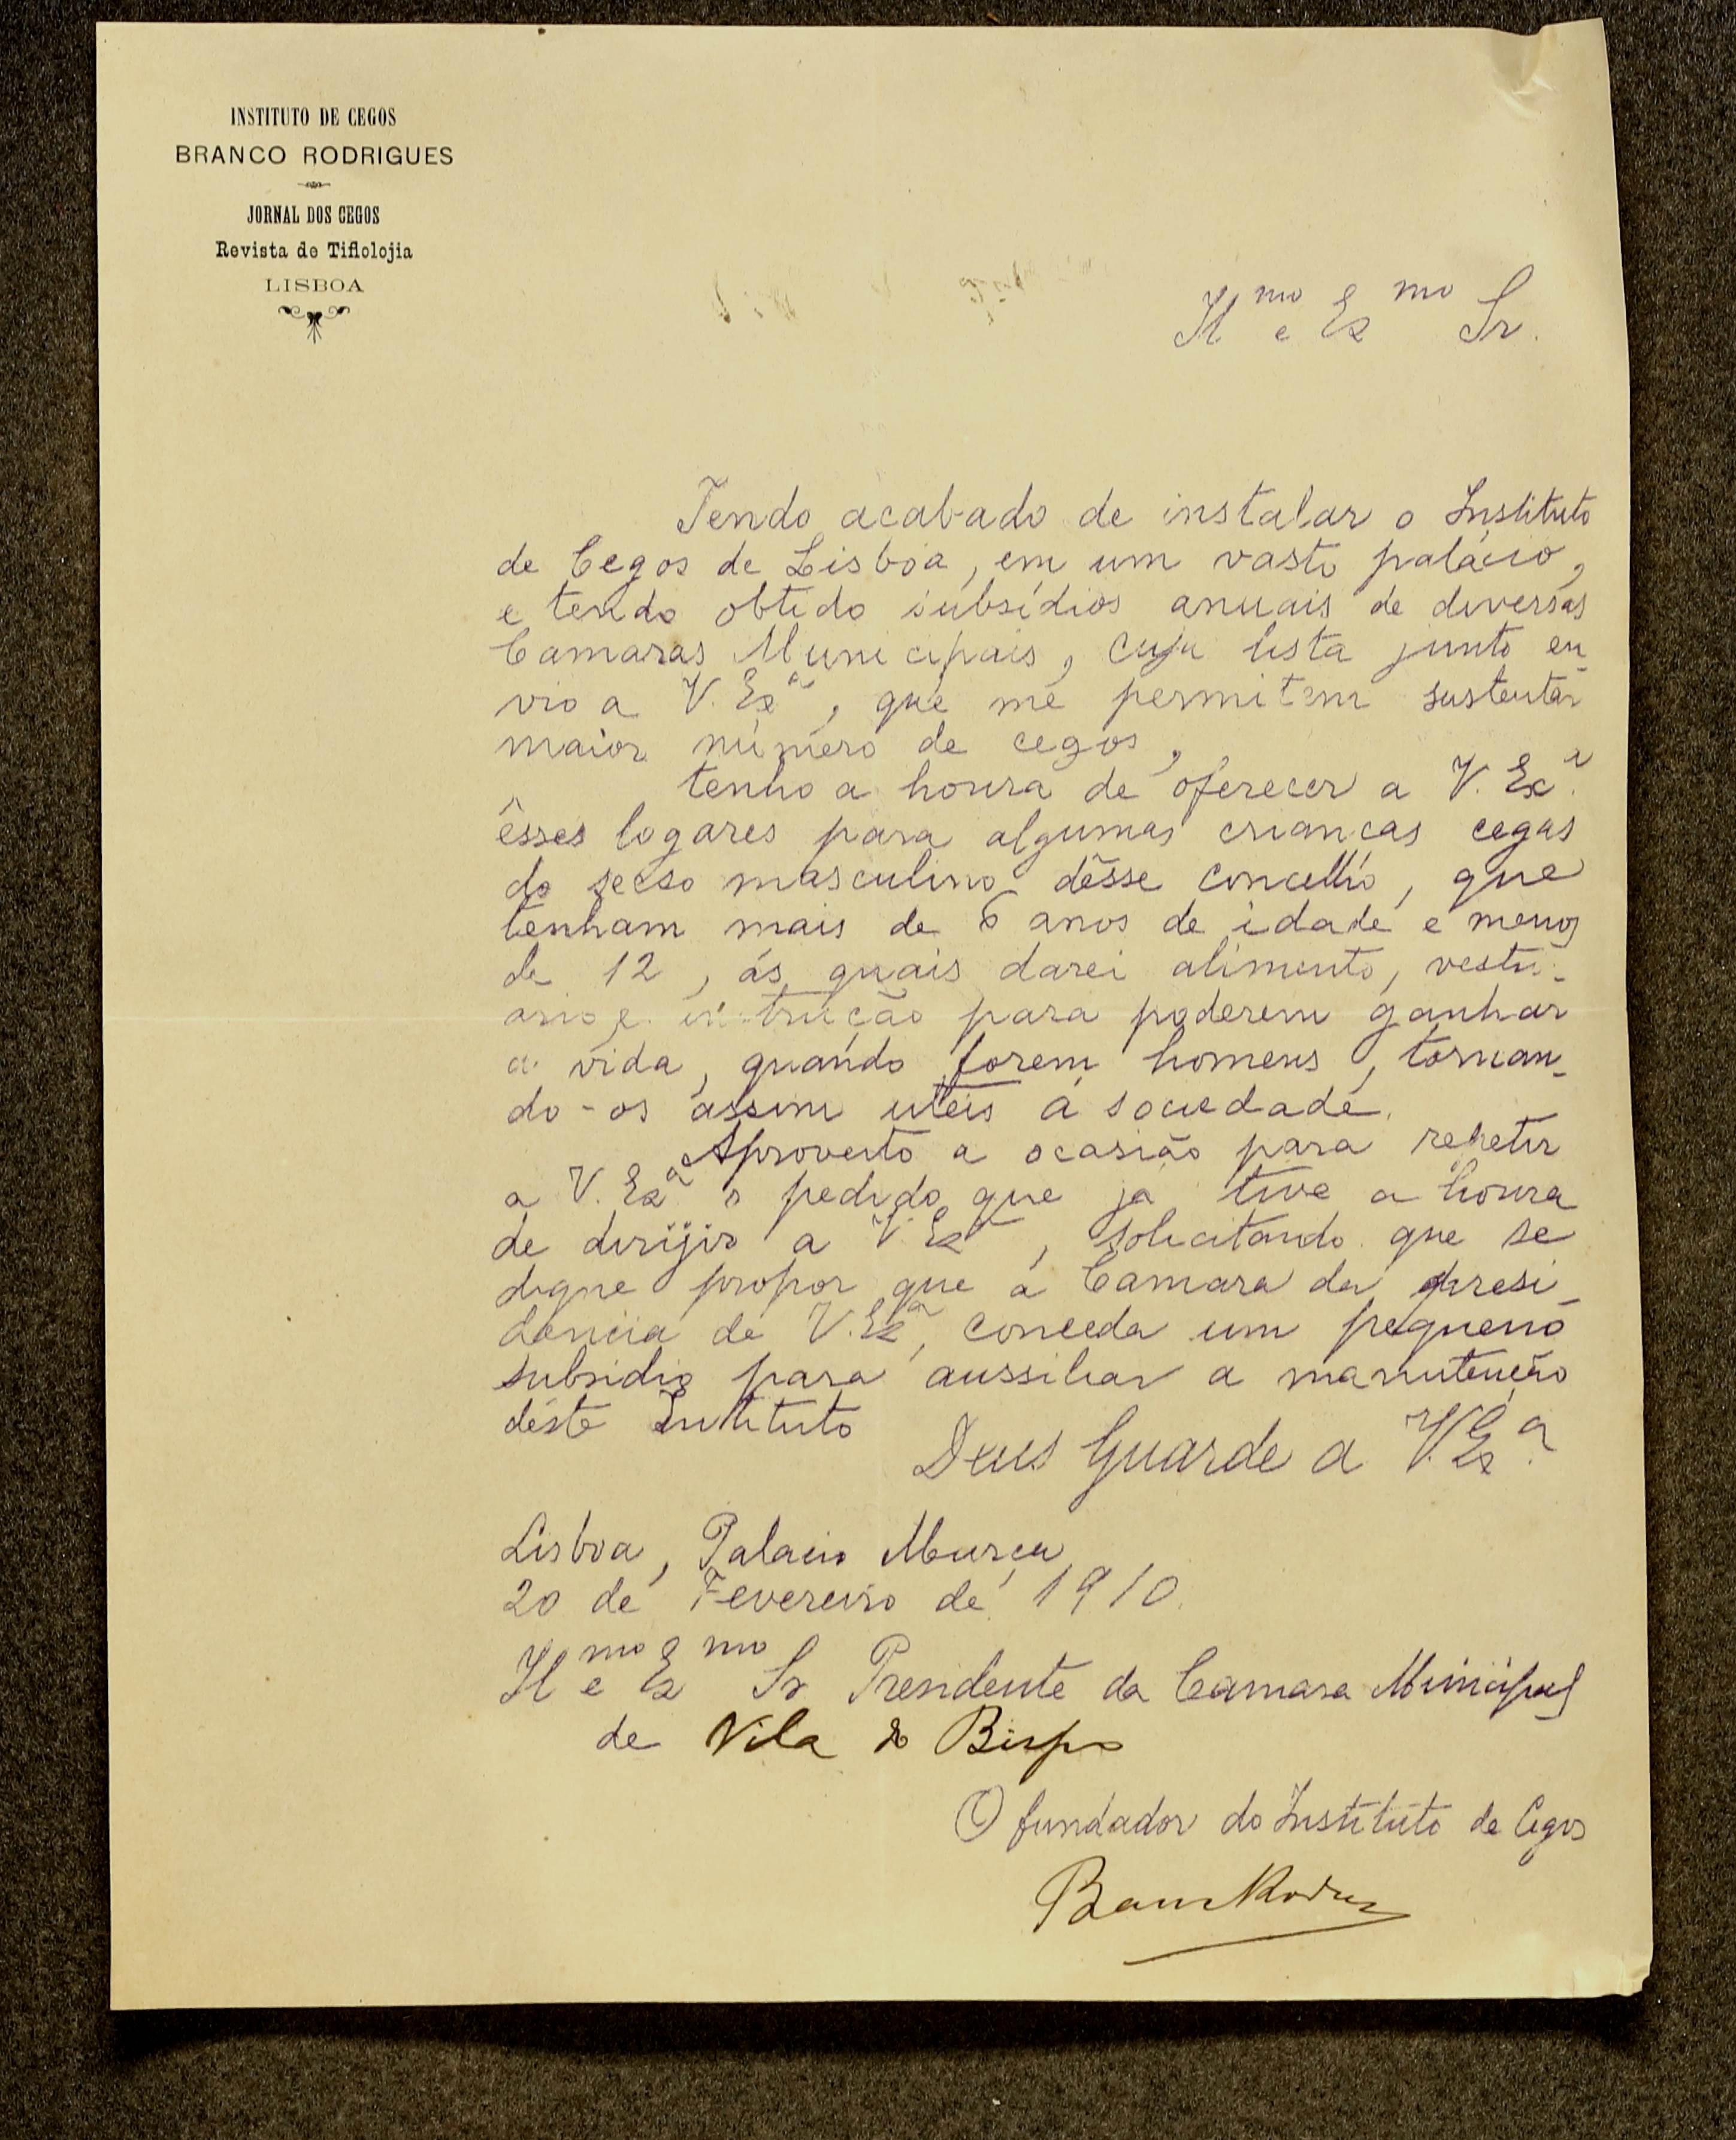 INSTITUTO DE CEGOS
BRANCO RODRIGUES
JORNAL DOS CEGOS
Revista de Tiflolojia
LISBOA
Il.mo e Ex.mo Sr.
Tendo acabado de instalar o Instituto
de Cegos de Lisbôa, em um vasto palácio,
e tendo obtido subsídios anuais de diversas
Camaras Municipais, cuja lista junto en-
vio a V. Ex.a, que me permitem sustentar
maior número de cegos,
tenho a honra de oferecer a V. Ex.a
êsses logares para algumas crianças cegas
do secso masculino dêsse concelho, que
tenham mais de 6 anos de idade e menos
de 12, ás quais darei alimento, vestu-
ario e instrução para poderem ganhar
a vida, quando forem homens, tornan-
do-os assim uteis á sociedade.
Aproveito a ocasião para repetir
a V. Ex.a o pedido que ja tive a honra
de dirijir a V. Ex.a, solicitando que se
digne propor que a Camara da presi-
dencia de V. Ex.a, conceda um pequeno
subsidio para aussiliar a manutenção
déste Instituto
Deus Guarde a V. Ex.a
Lisboa, Palacio Murça,
20 de Fevereiro de 1910.
Il.mo e Ex.mo Sr Presidente da Camara Municipal
de Vila do Bispo
O fundador do Instituto de Cegos